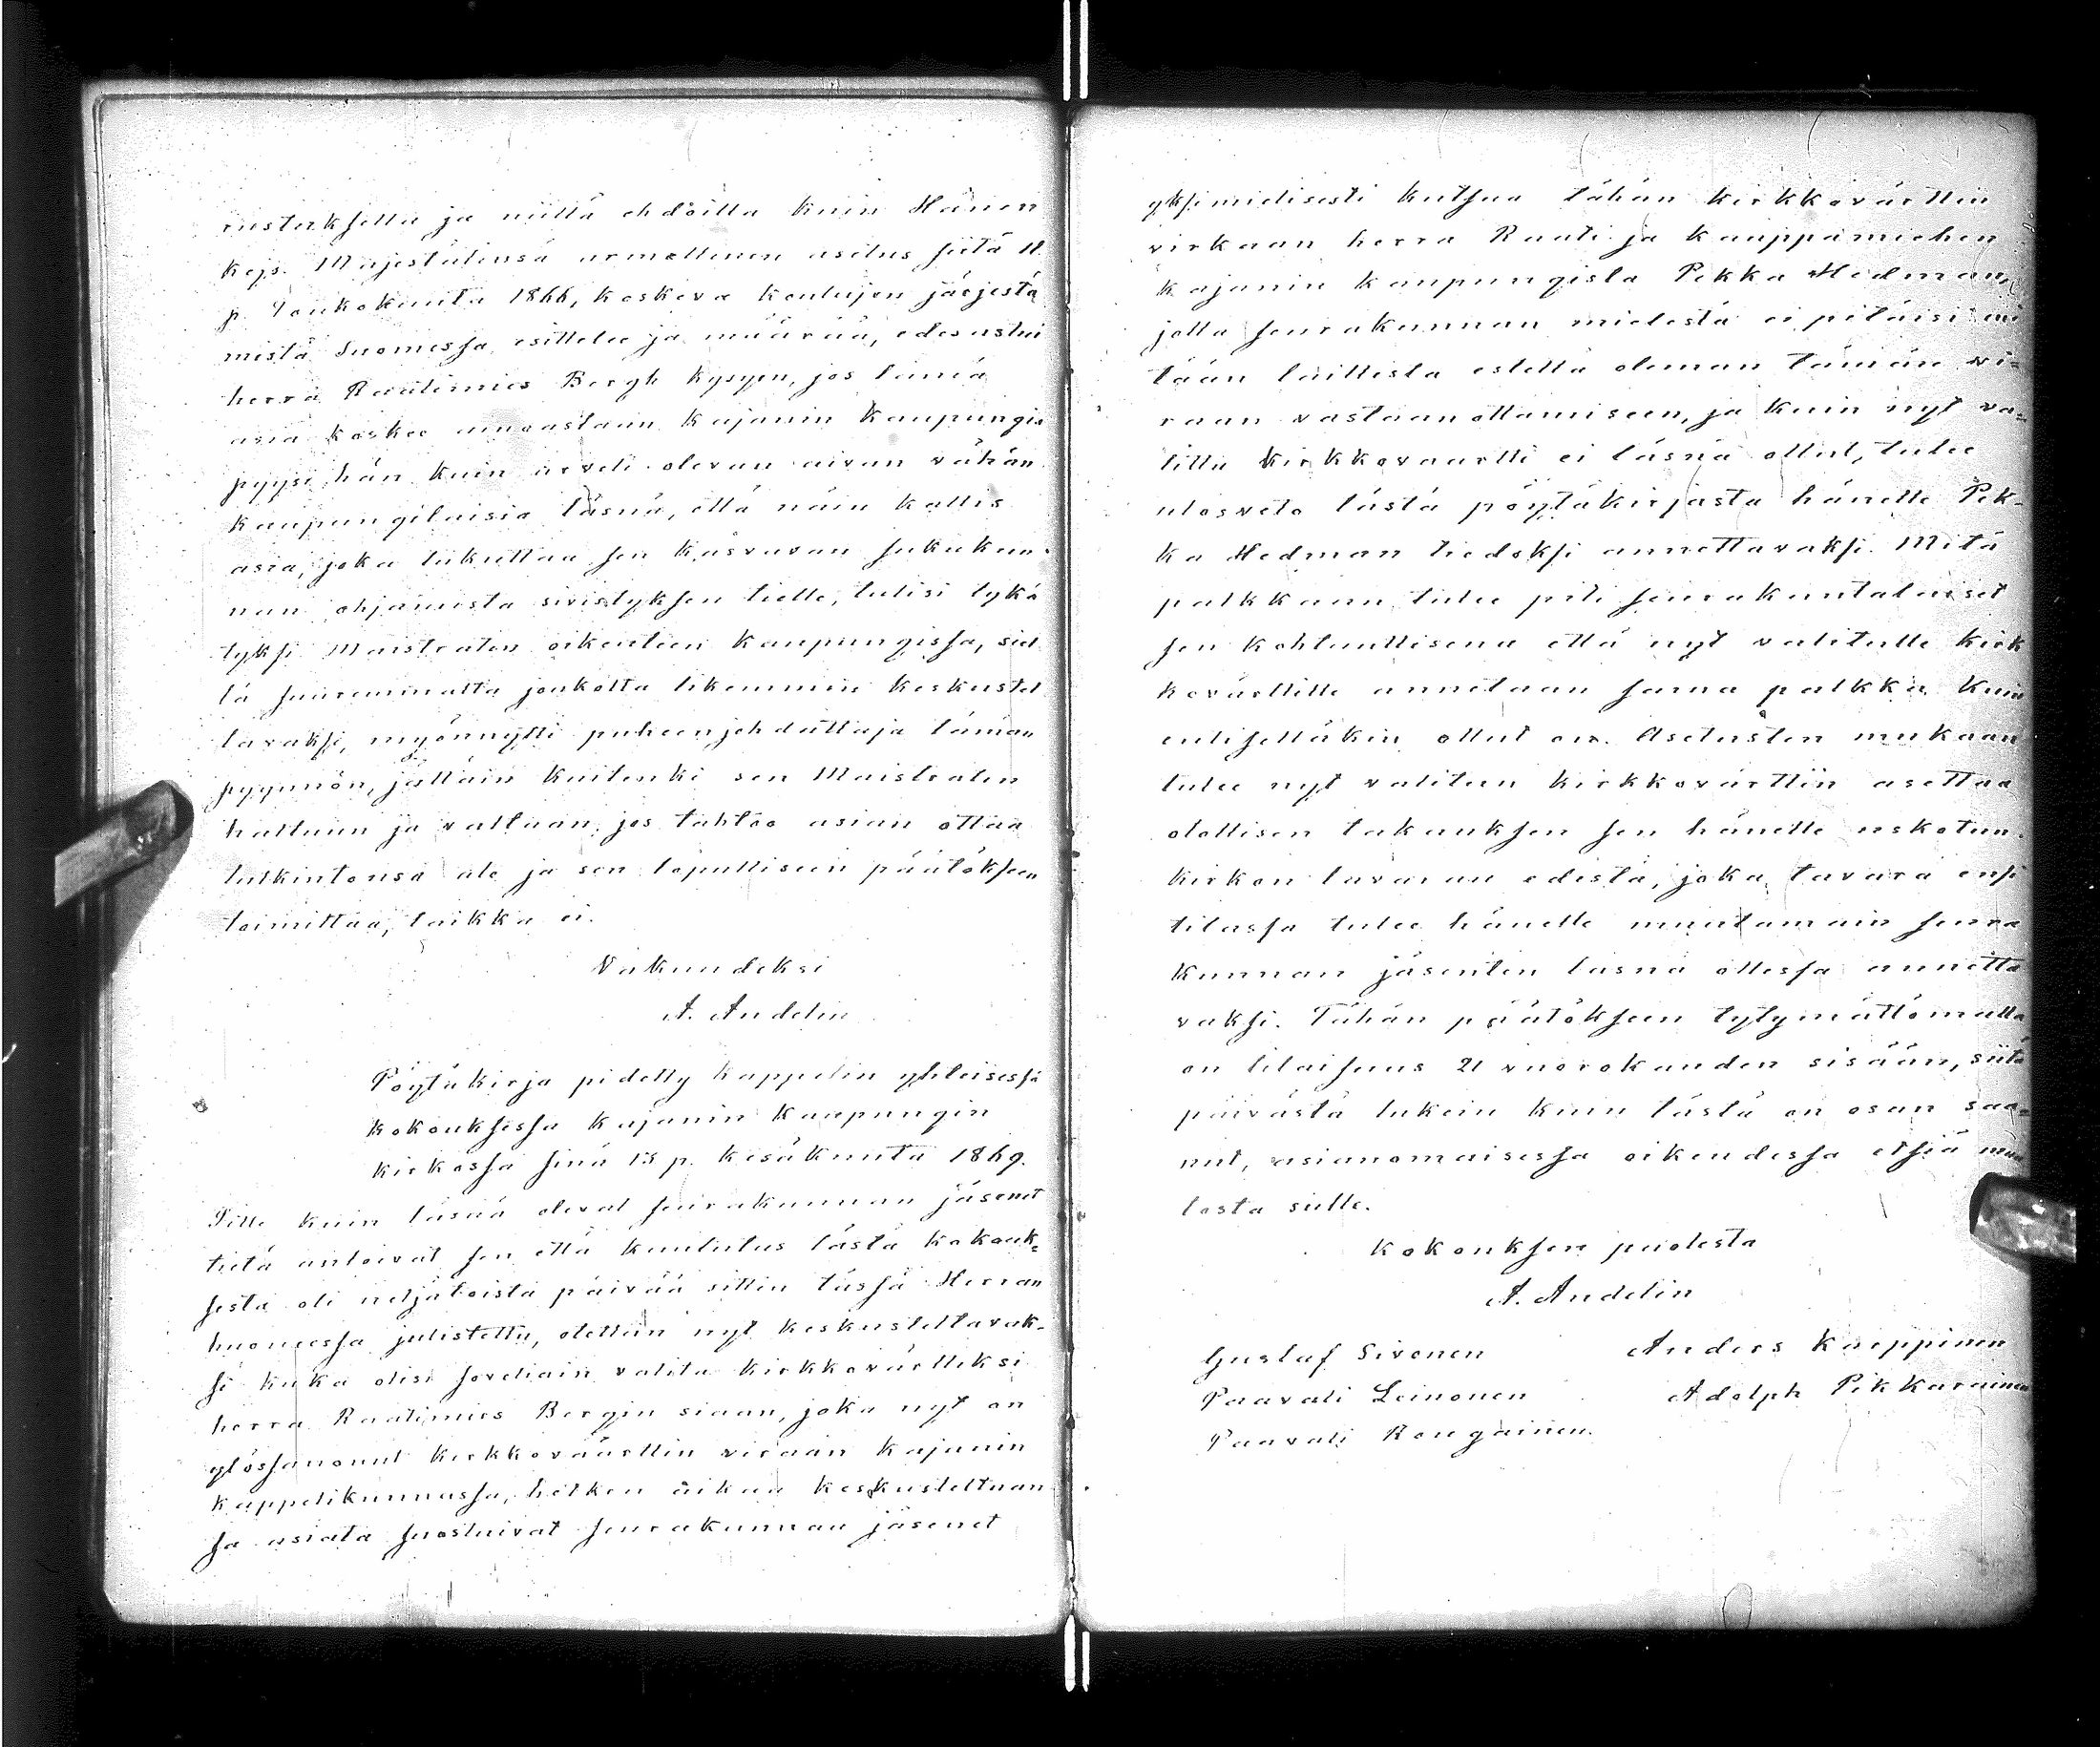 rustuksella ja niillä ehdoilla kuin Hänen
Keis. Majestätinsä armollinen asetus siitä 11
p. Toukokuuta 1866, koskeva koulujen järjestä
mistä Suomessa esittelee ja määrää, edesastui
herra Raatimies Bergh kysyen, jos tämä
asia koskee ainoastaan Kajanin Kaupungia
pyysi hän kuin arveli olevan aivan vähän
Kaupungilaisia läsnä, että näin kallis
asia, joka tukuttaa sen kasvavan sukukun-
nan ohjaamista sivistyksen tielle, tulisi lykä
tyksi Maistraten oikeuteen Kaupungissa, siel
lä suuremmalta joukolta likemmin keskustel
tavaksi, myönnytti puheenjohdattaja tämän
pyynnön, jättäin kuitenki sen Maistraten
haltuun ja valtaan, jos tahtoo asian ottaa
tutkintonsa ale ja sen lopulliseen päätökseen
toimittaa, taikka ei.
Vakuudeksi
A. Andelin
Pöytäkirja pidetty kappelin yhteisessä
kokouksessa Kajanin Kaupungin
kirkossa sinä 13 p. Kesäkuuta 1869.
Sitte kuin läsnä olevat seurakunnan jäsenet
tietä antoivat sen että kuulutus tästä kokouk-
sesta oli neljätoista päivää sitten tässä Herran
huoneessa julistettu, otettiin nyt keskusteltavak-
si kuka olisi soveliain valita kirkkovärttiksi
herra Raatimies Bergin siaan, joka nyt on
ylössanonut kirkkoväärttin viraan Kajanin
kappelikunnassa, hetken aikaa keskusteltuan
sa asiata suostuivat seurakunnan jäsenet
yksimielisesti kutsua tähän kirkkovärttin
virkaan herra Raati ja Kauppamiehen
Kajanin kaupungista Pekka Hedman,
jolla seurakunnan mielestä ei pitäisi mi
tään laillista estettä oleman tämän vi-
raan vastaanottamiseen, ja kuin nyt va-
littu kirkkovaartti ei läsnä ollut, tulee
ulosveto tästä pöytäkirjasta hänelle Pek-
ka Hedman tiedoksi annettavaksi. Mitä
palkkaan tulee piti seurakuntalaiset
sen kohtuullisena että nyt valitulle kirk
kovärttille annetaan sama palkka kuin
entisellakin ollut on. Asetusten mukaan
tulee nyt valitun kirkkovärttin asettaa
otollisen takauksen sen hänelle uskotun
kirkon tavaran edestä, joka tavara ensi
tilassa tulee hänelle muutamain seura
kunnan jäsenten läsnä ollessa annetta
vaksi. Tähän päätökseen tytymättömällä
on tilaisuus 21 vuorokauden sisään, siitä
päivästä lukein kuin tästä on osan saa-
nut, asianomaisessa oikeudessa etsiä muu
losta siille.
Kokouksen puolesta
A. Andelin
Gustaf Sivonen Anders Karppinen
Paavali Leinonen Adolph Pikkarainen
Paavali Rongainen.